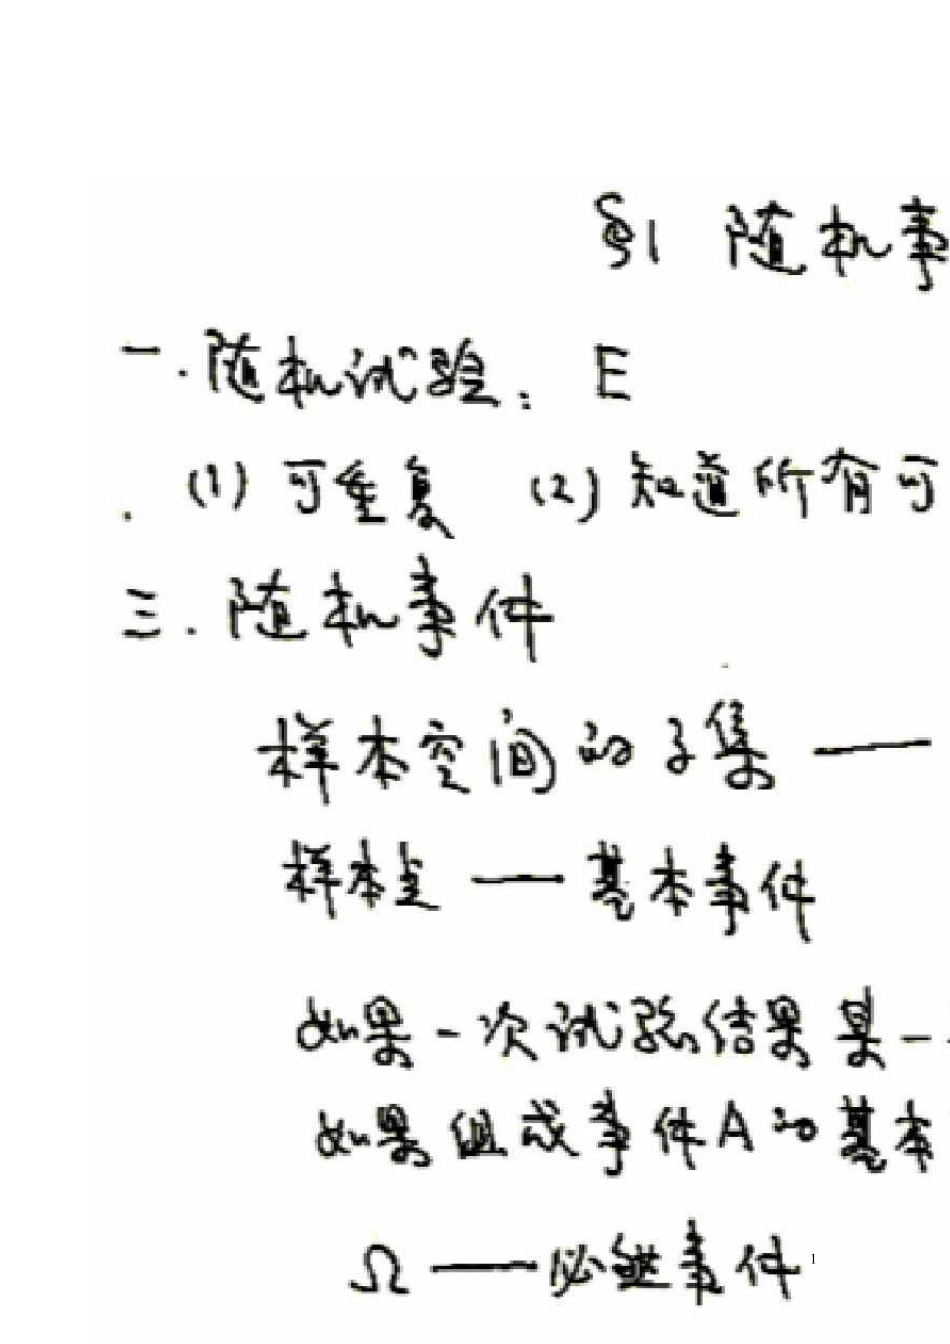 §1 随机事
一.随机试验: E
(1) 可重复 (2) 知道所有可
三.随机事件
样本空间的子集 ——
样本点 —— 基本事件
如果一次试验结果某一
如果组成事件A的基本
Ω —— 必然事件
1